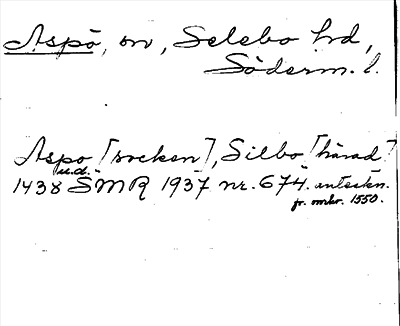 Aspö, sn, Selebo hd,
Söderm. l.
Aspo [socken], Silbo [härad]
u.d.
1438 SMR 1937 nr. 674. anteckn.
fr. omkr. 1550.